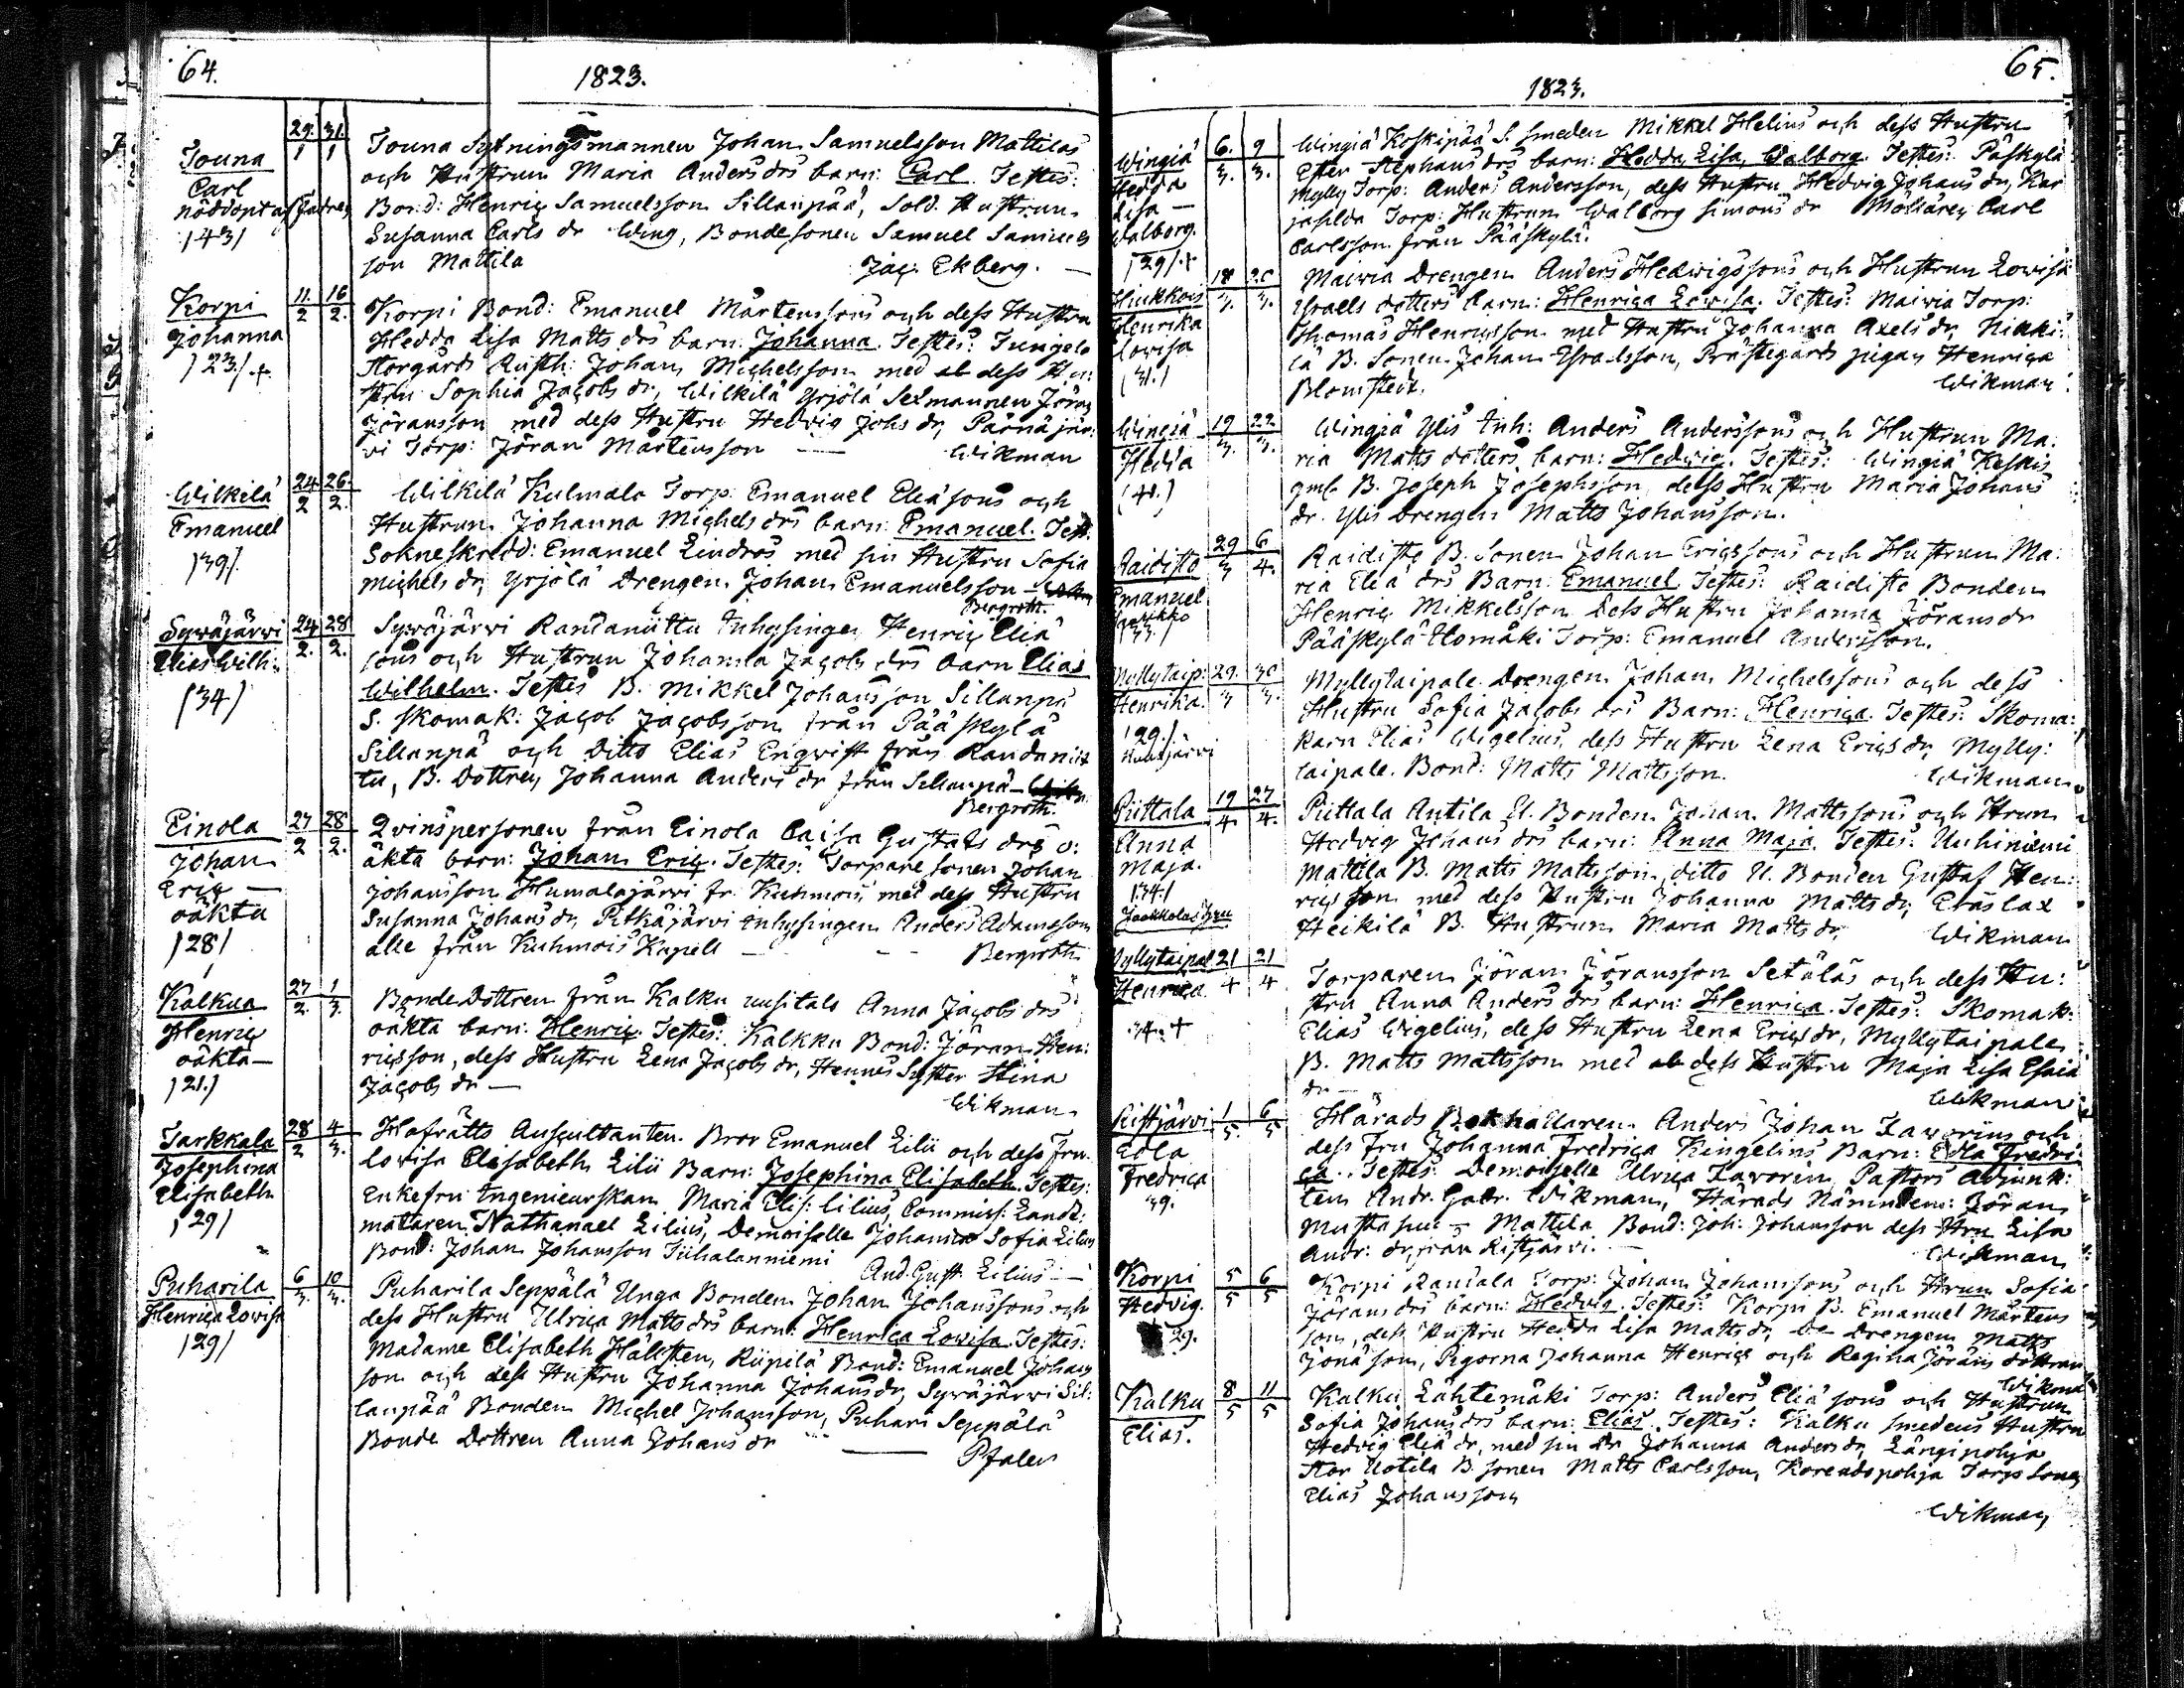 64.
1823.
Jouna
Carl
nöddopt af Fadren
/43/
29. 31.
1 1
Jouna Sytningsmannen Johan Samuelsson Mattilas
och Hustrun Maria Anders drs barn: Carl. Testes:
Bond: Henric Samuelsson Sillanpää, Sold. Hustrun
Susanna Carls dr Wing, Bondesonen Samuel Samuels
son Mattila Jac. Ekberg. —
Korpi
Johanna
/23/ +
11. 16
2 2.
Korpi Bond: Emanuel Mårtenssons och dess Hustru
Hedda Lisa Matts drs barn: Johanna. Testes: Jungela
Storgårds Rusth: Johan Michelsson med dess Hu:
stru Sophia Jacobs dr, Wilkilä Yrjölä Sexmannen Jöran
Jöransson med dess Hustru Hedvig Johs dr, Pärnäjär:
vi Torp: Jöran Mårtensson — Wikman
Wilkilä
Emanuel
/39/
24 26
2 2.
Wilkilä Kulmala Torp: Emanuel Eliæsons och
Hustrun Johanna Michels drs barn: Emanuel. Test:
Sokneskredd: Emanuel Lindros med sin Hustru Sofia
Michels dr, Yrjölä Drengen Johan Emanuelsson —
Bergroth.
Sywäjärwi
Elias Wilh:
/34/
24 28
2. 2.
Sywäjärwi Randaniittu Inhysingen Henric Eliæ
sons och Hustrun Johanna Jacobs drs barn Elias
Wilhelm. Testes B. Mikkel Johansson Sillanpä
S. skomak: Jacob Jacobsson från Pääskylä
Sillanpä och Ditto Elias Engwist från Randanit
tu, B. Dottren Johanna Anders dr från Sillanpä —
Bergroth.
Einola
Johan
Eric —
oäkta
/28/
27 28
2 2.
Qvinspersonen från Einola Caisa Gustafs drs o:
äkta barn: Johan Eric. Testes: Torpare sonen Johan
Johansson Humalajärvi fr. Kuhmois, med dess Hustru
Susanna Johans dr, Pitkäjärvi Inhysingen Anders Adamsson
alle från Kuhmois Kapell — Bergroth
Kalkua
Henric
oäkta —
/21./
27 1
2. 3.
Bonde Dottren från Kalku uusitalo Anna Jacobs drs
oäkta barn: Henric. Testes: Kalkku Bond: Jöran Hen:
ricsson, dess Hustru Lena Jacobs dr, Hennes Syster Stina
Jacobs dr — Wikman
Jarkkala
Josephina
Elisabeth
/29/
28 4
2 3.
Hofrätts Auscultanten Bror Emanuel Lilii och dess Fru
Lovisa Elisabeth Lilii Barn: Josephina Elisabeth. Testes:
Enkefru Ingenieurskan Maria Elis: Lilius, Commiss: Landt:
mätaren Nathanael Lilius, Demoiselle Johanna Sofia Lilius
Bond: Johan Johansson Tiihalanniemi And. Gust. Lilius —
Puharila
Henrica Lowisa
/29/
6 10
3. 3.
Puharila Seppälä Unga Bonden Johan Johanssons och
dess Hustru Ulrica Matts drs barn: Henrica Lowisa. Testes:
Madame Elisabeth Hällsten, Riipilä Bond: Emanuel Johans
son och dess Hustru Johanna Johans dr, Sywäjärwi Sil:
lanpää Bonden Michel Johansson, Puhari Seppälä
Bonde Dottren Anna Johans dr — Pfaler
65.
1823.
Wingiä
Hedda
Lisa —
Walborg.
/29/ +
6. 9
3. 3.
Wingiä Koskipää S. smeden Mikkel Helins och dess Hustru
Ester Stephans drs barn: Hedda, Lisa, Walborg. Testes: Päskylä
Mylly Torp: Anders Andersson, dess Hustru Hedvig Johans dr, Kar
jasilda Torp: Hustrun Walborg Simons dr Carl
Carlsson från Pääskylä.
Hiukkois
Henrika
Lowisa
/31./
18 20
3. 3.
Maivia Drengen Anders Hedwigssons och Hustrun Lowisa
Israells dotters barn: Henrica Lowisa. Testes: Maivia Torp:
Thomas Henricsson med Hustru Johanna Axels dr, Nikki:
lä B. Sonen Johan Israelsson, Prästegårds pigan Henrica
Blomstedt. Wikman
Wingiä
Hedda
/41./
19 22
3. 3.
Wingiä Ylis Inh: Anders Anderssons och Hustrun Ma:
ria Matts dotters barn: Hedwig. Testes: Wingiä Keskis
gml. B. Joseph Josephsson, dess Hustru Maria Johans
dr. Ylis Drengen Matts Johansson.
Raidisto
Emanuel
/33/
29 6
3 4.
Raidisto B. Sonen Johan Ericssons och Hustrun Ma:
ria Eliæ drs Barn: Emanuel Testes: Raidisto Bonden
Henric Mikkelsson Dess Hustru Johanna Jörans dr
Pääskylä Ilomäki Torp: Emanuel Andersson.
Myllytaip:
Henrika.
/29./
29. 30
3 3.
Myllytaipale Drengen Johan Michelssons och dess
Hustru Sofia Jacobs drs Barn: Henrica. Testes: Skoma:
karn Elias Wigelius, dess Hustru Lena Erics dr, Mylly:
taipale. Bond: Matts Mattsson. Wikman
Piittala
Anna
Maja.
/34/
19 27
4. 4.
Piittala Antila U. Bonden Johan Mattssons och Hrun
Hedvig Johans drs barn: Anna Maja. Testes: Uuhiniemi
Mattila B. Matts Mattsson, ditto U. Bonden Gustaf Hen:
rics son med dess Hustru Johanna Matts dr, Eräslax
Heikilä B. Hustrun Maria Matts dr. Wikman
Myllytaipal
Henrica
34. +
21 21
4 4
Torparen Jöran Jöransson Setäläs och dess Hu:
stru Anna Anders drs barn: Henrica. Testes: Skomak:
Elias Wigelius, dess Hustru Lena Erics dr, Myllytaipale
B. Matts Mattsson med dess Hustru Maja Lisa Esaiæ
dr — Wikman
Ristjärwi
Edla
Fredrica
39.
1 6
5. 5
Härads Bokhållaren Anders Johan Zaworins och
dess Fru Johanna Fredrica Kingelins Barn: Edla Fredri
ca. Testes: Demoiselle Ulrica Zavorin, Pastors Adjunk:
ten Andr. Gabr. Wikman, Härads Nämndem: Jöran
Mattila Bond: Joh: Johansson dess Hru Lisa
Andr: dr, från Ristjärvi. — Wikman
Korpi
Hedvig.
29.
5 6
5 5
Korpi Randala Torp: Johan Johanssons och Hrun Sofia
Jörans drs barn: Hedvig. Testes: Korpi B. Emanuel Mårtens
son, dess Hustru Hedda Lisa Matts dr, Drengen Matts
Jonæson, Pigorna Johanna Henrics och Regina Jörans döttrar
Wikman
Kalku
Elias.
8 11
5 5
Kalku Lähtemäki Torp: Anders Eliæ sons och Hustrun
Sofia Johans drs barn: Elias. Testes: Kalku smedens Hustru
Hedvig Eliæ dr, med sin dr Johanna Anders dr, Längipohja
Stor Uotila B. sonen Matts Carlsson, Korendopohja Torp Sonen
Elias Johansson
Wikman